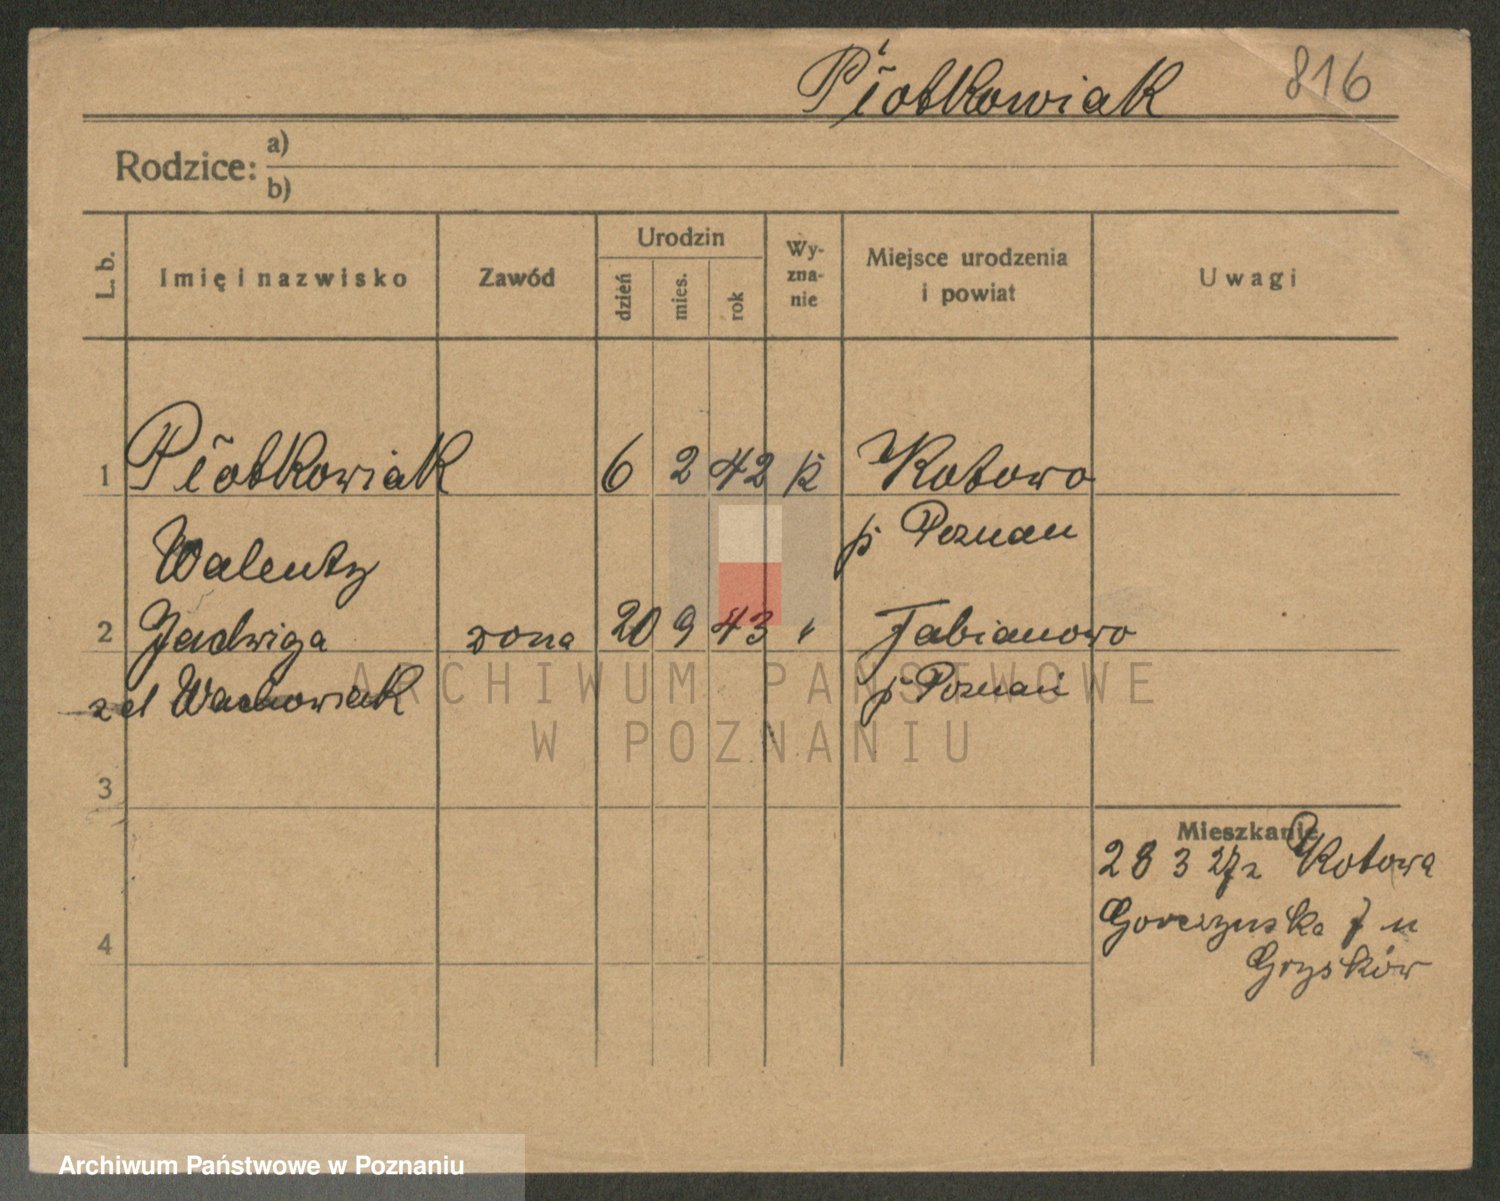 Piotkowiak 816
Rodzice: a)
b)
L. b.
Imię i nazwisko
Zawód
Urodzin
dzień
mies.
rok
Wy-
zna-
nie
Miejsce urodzenia
i powiat
Uwagi
1 Piotkowiak 6 2 42 k Kotowo
Walenty p Poznań
2 Jadwiga żona 20 9 43 " Fabianowo
z d Wachowiak p Poznań
3
4
Mieszkanie
28 3 27 z Kotowa
Gorczyńska 7 u
Grysków
ARCHIWUM PAŃSTWOWE
W POZNANIU
Archiwum Państwowe w Poznaniu